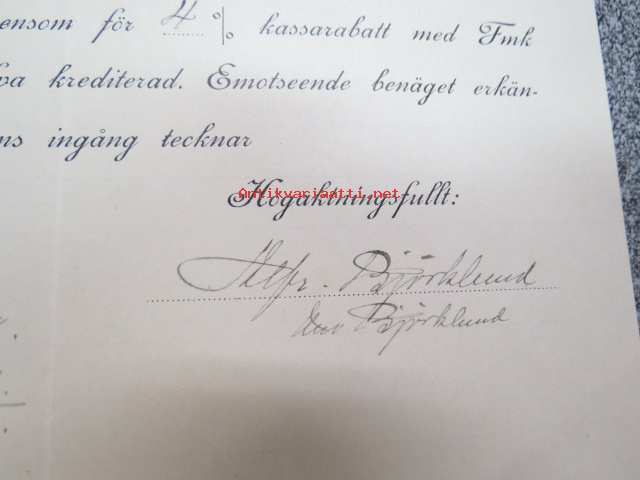 ensom för 4 % kassarabatt med Fmk
va krediterad. Emotseende benäget erkän-
ns ingång tecknar
Högaktningsfullt:
Antikvariaatti.net
Alfr. Björklund
Björklund